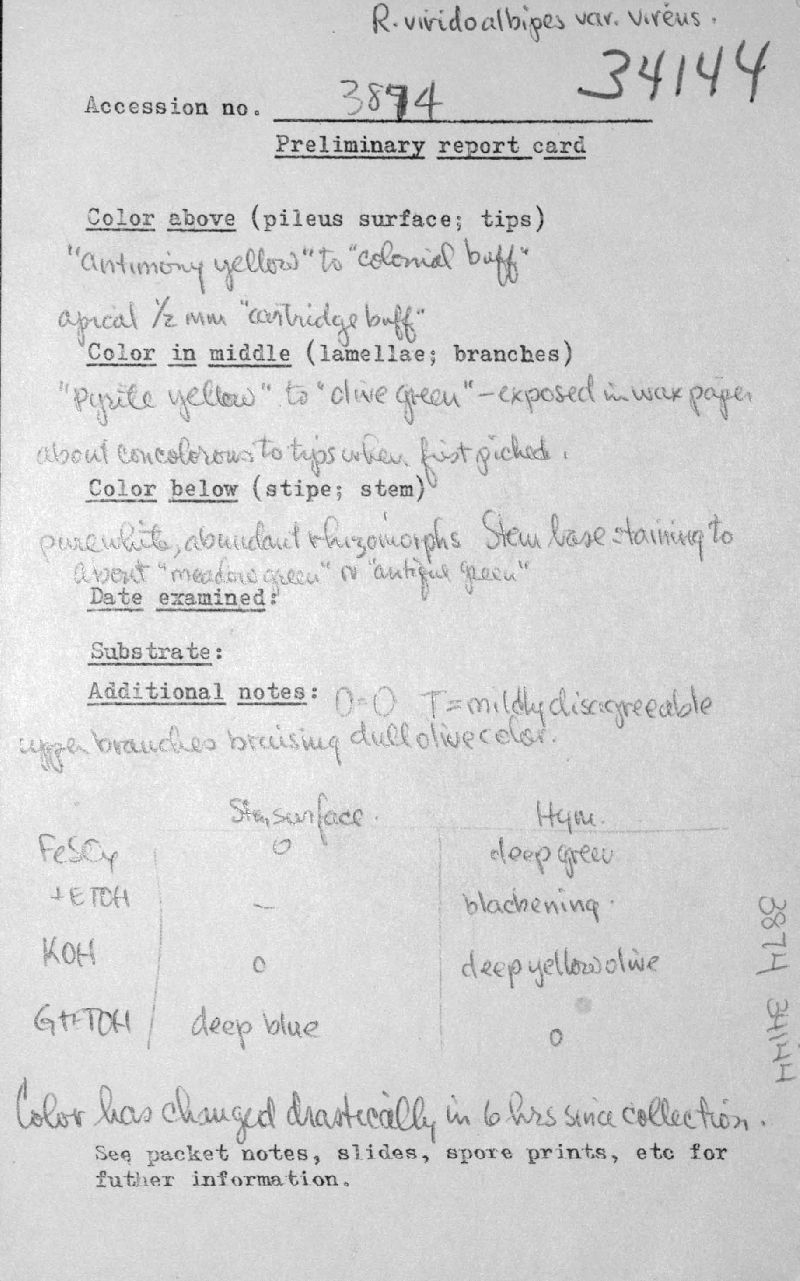 R. viridoalbipes var. virēus.
34144
Accession no. 3874
Preliminary report card
Color above (pileus surface; tips)
"antimony yellow" to "colonial buff"
apical 1/2 mm "cartridge buff"
Color in middle (lamellae; branches)
"pyrite yellow" to "olive green" - exposed in wax paper
about concolorous to tips when first picked.
Color below (stipe; stem)
pure white, abundant rhizomorphs Stem base staining to
about "meadow green" or "antique green"
Date examined:
Substrate:
Additional notes: O=O T=mildly disagreeable
upper branches bruising dull olive color.
Stem surface. Hym.
FeSO4 O deep green
+ETOH — blackening.
KOH O deep yellow olive
G+ETOH deep blue O
3874 34144
Color has changed drastically in 6 hrs since collection.
See packet notes, slides, spore prints, etc for
futher information.